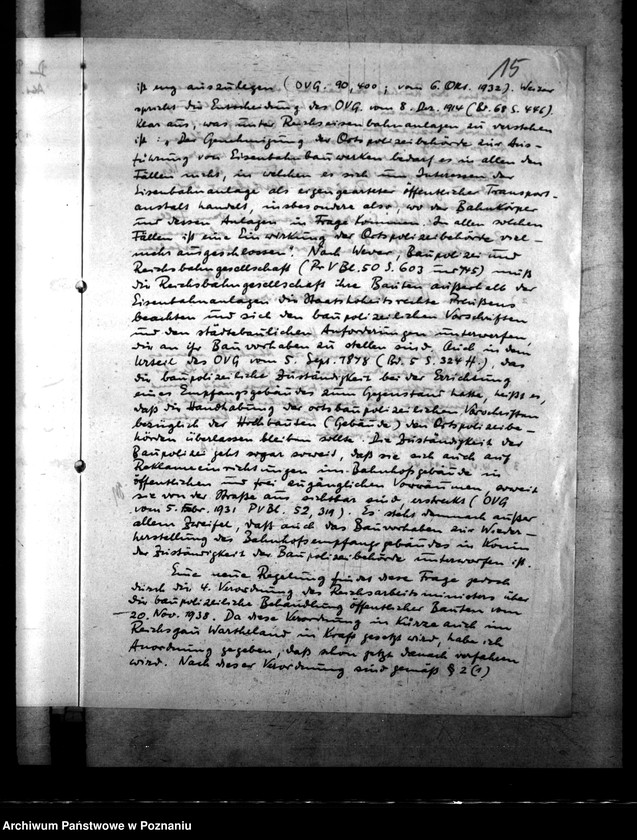 15
ist eng auszulegen (OVG. 90,400; vom 6. Okt. 1932). Weiter
spricht die Entscheidung des OVG. vom 8. Dez. 1914 (Bd. 68 S. 446)
klar aus, was unter Reichseisenbahnanlagen zu verstehen
ist: „Der Genehmigung der Ortspolizeibehörde zur Aus-
führung von Eisenbahnbauwerken bedarf es in allen den
Fällen nicht, in welchen es sich um Interessen der
Eisenbahnanlage als öffentlicher Transport-
anstalt handelt, insbesondere also, wo der Bahnkörper
und dessen Anlagen in Frage kommen. In allen solchen
Fällen ist eine Einwirkung der Ortspolizeibehörde viel-
mehr ausgeschlossen". Nach Wever, Baupolizei und
Reichsbahngesellschaft (PrVBl. 50 S. 603 und 745) muß
die Reichsbahngesellschaft ihre Bauten außerhalb der
Eisenbahnanlagen die Staatshoheitsrechte Preußens
beachten und sich den baupolizeilichen Vorschriften
und den städtebaulichen Anforderungen unterwerfen,
die an ihr Bauvorhaben zu stellen sind. Auch in dem
Urteil des OVG vom 5. Sept. 1878 (Bd. 5 S. 324 ff.), das
die baupolizeiliche Zuständigkeit bei der Errichtung
eines Empfangsgebäudes zum Gegenstand hatte, heißt es,
daß die Handhabung der ortsbaupolizeilichen Vorschriften
bezüglich der Hochbauten (Gebäude) den Ortspolizeibe-
hörden überlassen bleiben sollte. Die Zuständigkeit der
Baupolizei geht sogar soweit, daß sie sich auch auf
Reklameeinrichtungen im Bahnhofsgebäude in
öffentlichen und frei zugänglichen Vorräumen soweit
sie von der Straße aus sichtbar sind erstreckt (OVG
vom 5. Febr. 1931 PVBl. 52, 319). Es steht demnach außer
allem Zweifel, daß auch das Bauvorhaben zur Wieder-
herstellung des Bahnhofsempfangsgebäudes in Konin
der Zuständigkeit der Baupolizeibehörde unterworfen ist.
Eine neue Regelung findet diese Frage jedoch
durch die 4. Verordnung des Reichsarbeitsministers über
die baupolizeiliche Behandlung öffentlicher Bauten vom
20. Nov. 1938. Da diese Verordnung in Kürze auch im
Reichsgau Wartheland in Kraft gesetzt wird, habe ich
Anordnung gegeben, daß schon jetzt danach verfahren
wird. Nach dieser Verordnung sind gemäß § 2 (1)
Archiwum Państwowe w Poznaniu